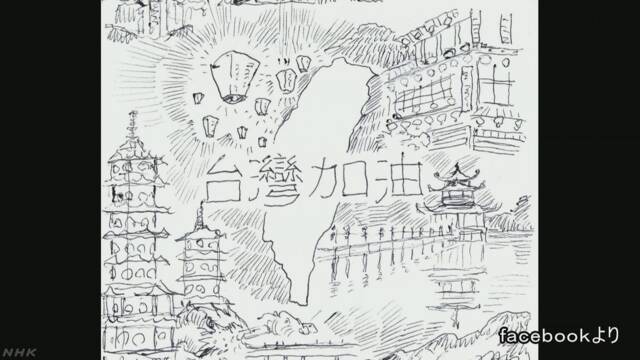 台灣加油
facebookより
NHK